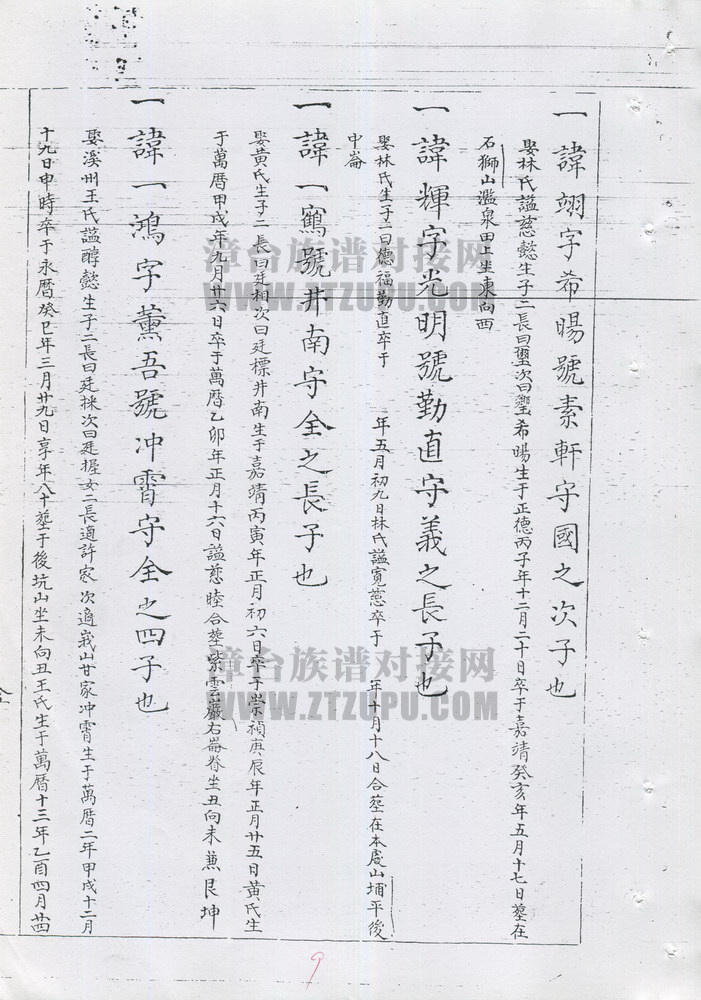 一諱翊字希暘號素軒守國之次子也
娶林氏謚慈懿生子二長曰璽次曰璧希暘生于正德丙子年十二月二十日卒于嘉靖癸亥年五月十七日墓在
石獅山濫泉田上坐東向西
一諱輝字光明號勤直守義之長子也
娶林氏生子二曰德福勤直卒于 年五月初九日林氏謚寬慈卒于 年十月十八日合墓在本處山埔平後
中崙
一諱一鶴號井南守全之長子也
娶黃氏生子二長曰廷相次曰廷標井南生于嘉靖丙寅年正月初六日卒于崇禎庚辰年正月廿五日黃氏生
于萬曆甲戌年九月廿六日卒于萬曆乙卯年正月十六日謚慈睦合墓紫雲巖右崙脊坐丑向未兼艮坤
一諱一鴻字薰吾號冲霄守全之四子也
娶溪州王氏謚醇懿生子二長曰廷採次曰廷握女二長適許家次適峩山甘家冲霄生于萬曆二年甲戌十二月
十九日申時卒于永曆癸巳年三月廿九日享年八十墓于後坑山坐未向丑王氏生于萬曆十三年乙酉四月廿四
漳台族谱对接网
WWW.ZTZUPU.COM
漳台族谱对接网
WWW.ZTZUPU.COM
9